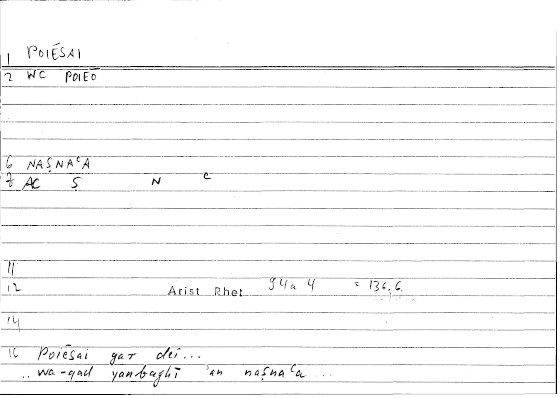 1 POIĒSAI
2 WC POIEŌ
6 NAṢNAʿA
7 AC Ṣ N ʿ
11
12 Arist Rhet 94a 4 = 136,6
14
16 Poiēsai gar dei...
.. wa-qad yanbaghī ʾan naṣnaʿa ...